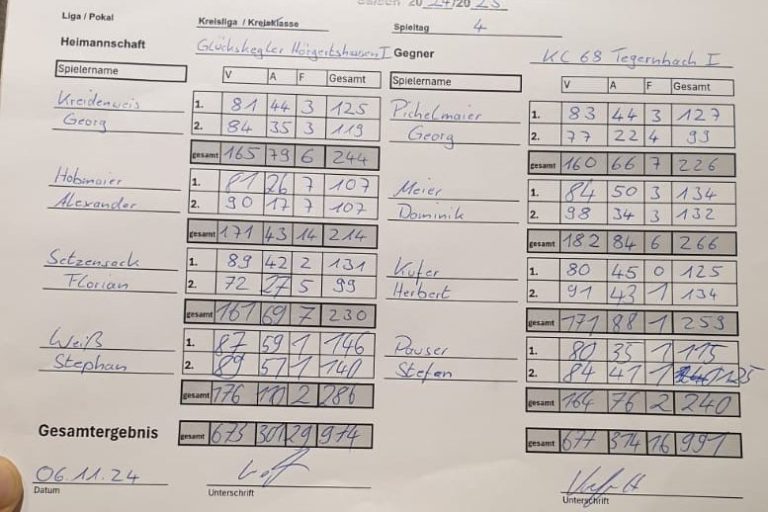 Saison 2024/2025
Liga / Pokal Kreisliga / Kreisklasse Spieltag 4
Heimannschaft Glückskegler Hörgertshausen I Gegner KC 68 Tegernbach I
Spielername V A F Gesamt Spielername V A F Gesamt
Kreidenweis 1. 81 44 3 125 Pichelmaier 1. 83 44 3 127
Georg 2. 84 35 3 119 Georg 2. 77 22 4 99
gesamt 165 79 6 244 gesamt 160 66 7 226
Hobmaier 1. 81 26 7 107 Meier 1. 84 50 3 134
Alexander 2. 90 17 7 107 Dominik 2. 98 34 3 132
gesamt 171 43 14 214 gesamt 182 84 6 266
Setzensack 1. 89 42 2 131 Kufer 1. 80 45 0 125
Florian 2. 72 27 5 99 Herbert 2. 91 43 1 134
gesamt 161 69 7 230 gesamt 171 88 1 259
Weiß 1. 87 59 1 146 Pauser 1. 80 35 1 115
Stephan 2. 89 51 1 140 Stefan 2. 84 41 1 125
gesamt 176 110 2 286 gesamt 164 76 2 240
Gesamtergebnis gesamt 673 301 29 974 gesamt 677 314 16 991
06.11.24
Datum Unterschrift Unterschrift